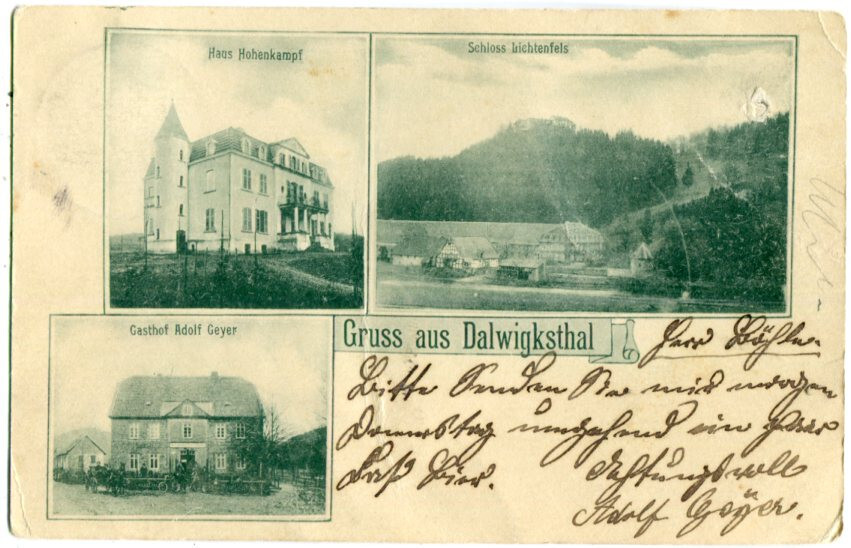 Haus Hohenkampf
Schloss Lichtenfels
Gasthof Adolf Geyer
Gruss aus Dalwigksthal
Herr
Bitte Senden Sie mir morgen
Donerstag umgehend ein paar
Faß Bier.
Achtungsvoll
Adolf Geÿer.